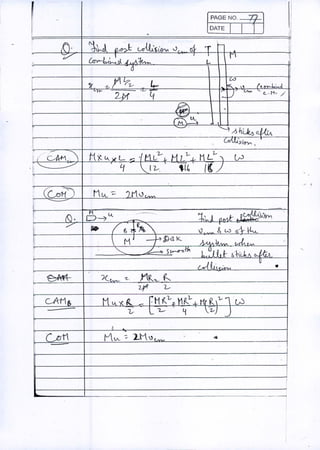 PAGE NO. 77
DATE
Q. Find post collision v_cm of
combined system.
T
L
M
ω
v_cm (combined C.M.)
x_cm = ML/2 / 2M = L/4
M
u
sticks after collision.
CAM_cm
M×u×L/4 = (ML²/12 + ML²/16 + ML²/16) ω
COM
Mu = 2Mv_cm
Q. M → u
B R/2
M
Disk
smooth
Find post collision
v_cm & ω of the
system, when
bullet sticks after
collision
x_cm = MR/2M = R/2
CAM_B
Mu×R/2 = [MR²/2 + MR²/4 + M(R/2)²] ω
COM
Mu = 2Mv_cm